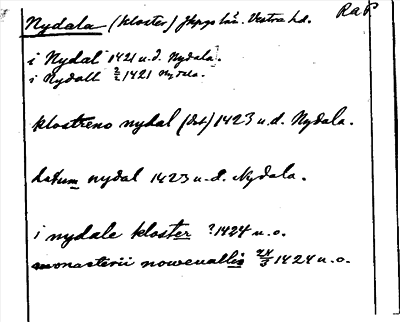 RaP
Nydala (kloster) Jkpgs län. Vestra hd.
i Nydal 1421 u.d. Nydala.
i Nydall 2/2 1421 Nydala.
klostreno nydal (Dat) 1423 u.d. Nydala.
datum nydal 1423 u.d. Nydala.
i nydale kloster ? 1424 u.o.
monasterii nowevallis 24/3 1424 u.o.